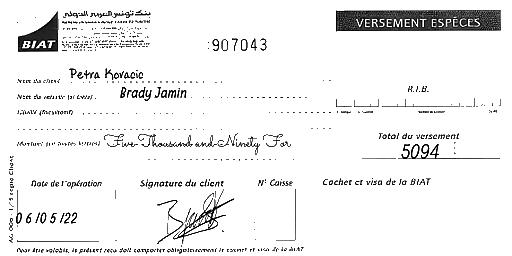 بنك تونس العربي الدولي
BIAT
VERSEMENT ESPÈCES
907043
Nom du client Petra Kovacic
Nom du remettant (si tiers) Brady Jamin
R.I.B.
Libellé (facultatif)
Montant (en toutes lettres) Five Thousand and Ninety For
Total du versement
5094
Date de l'opération
Signature du client
N° Caisse
Cachet et visa de la BIAT
06/05/22
Pour être valable, le présent reçu doit comporter obligatoirement le cachet et visa de la BIAT